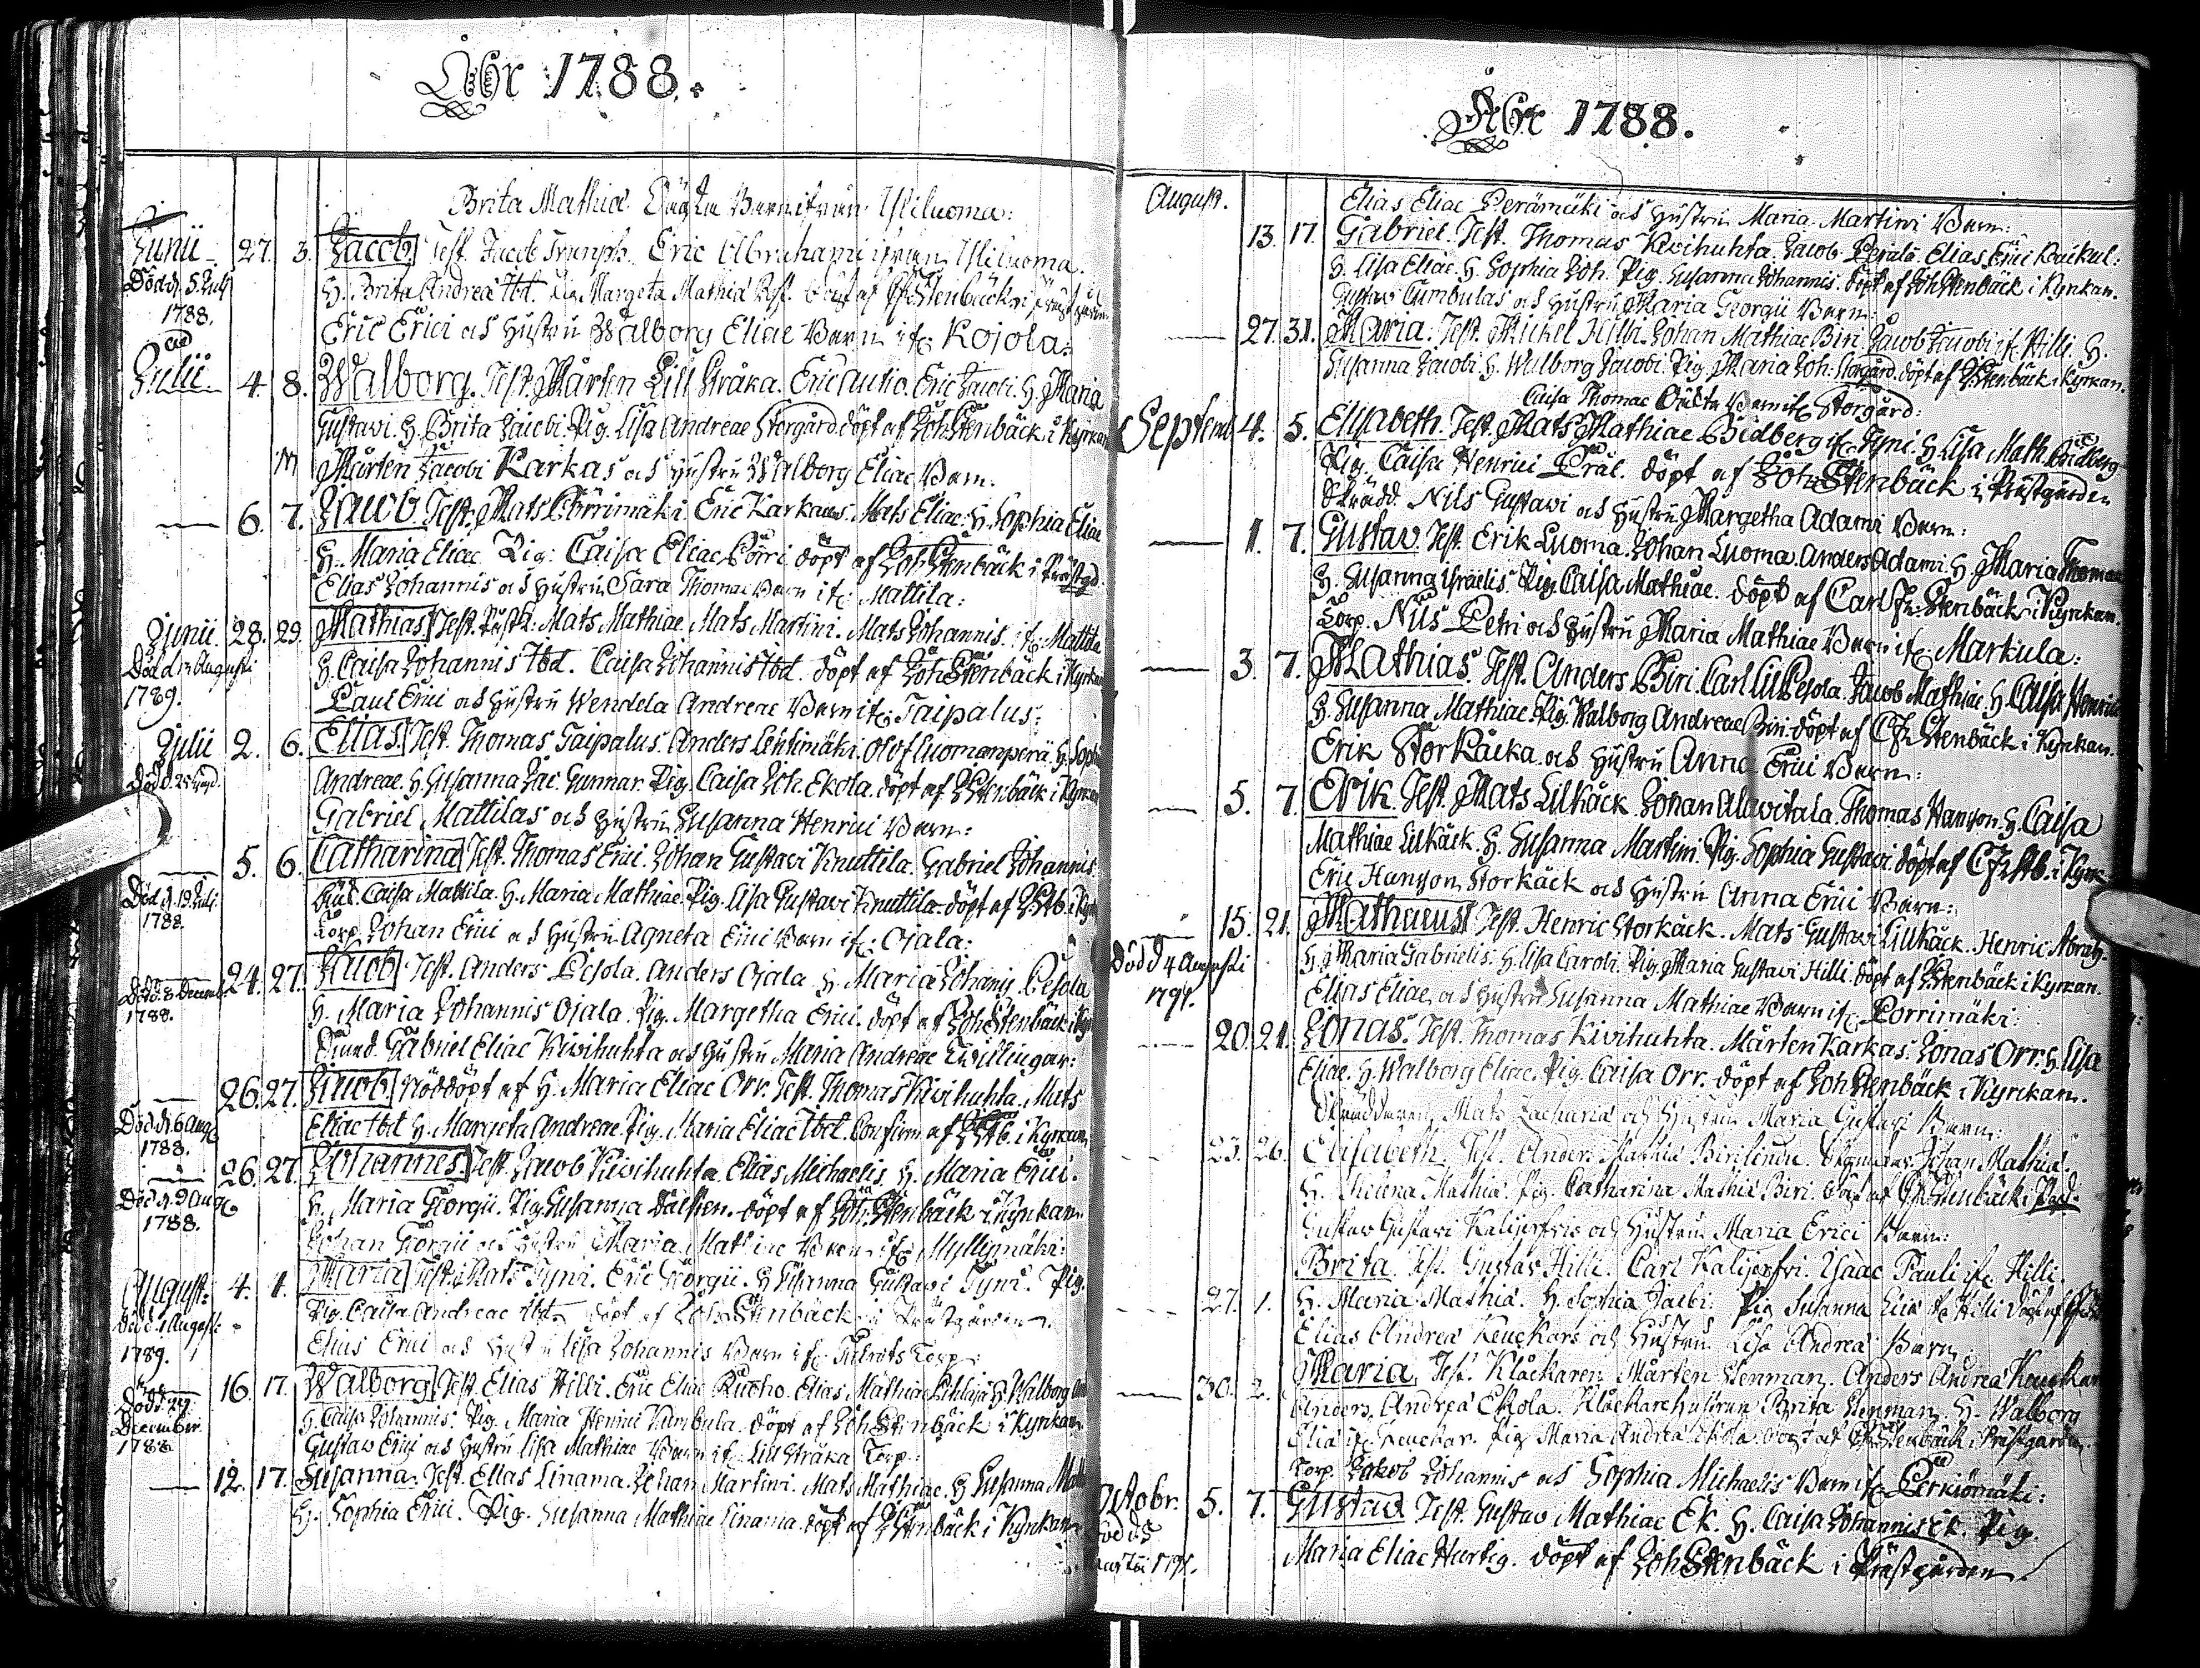 Åhr 1788.
Brita Mathiæ Oächta Barn ifrån Yliluoma:
Junii 27. 3. Jacob Test. Jacob Trumph. Eric Abrahami ifrån Yliluoma.
Död d. 5. Julii 1788.
H. Brita Andreæ Ibd. Pig. Margeta Mathiæ döpt af Stenbäck i prästgården
Eric Erici och Hustru Walborg Eliae Barn ifr. Kojola:
Julii 4. 8. Walborg. Test. Mårten Lill Stråka. Eric Autio. Eric Jacobi. H. Maria
Gustavi. H. Brita Jacobi. Pig. Lisa Andreae Storgård. döpt af Joh Stenbäck i Kyrkan
Mårten Jacobi Karkas och Hustru Walborg Eliae Barn.
6. 7. Jacob Test. Mats Pörrimäki Eric Karkaus. Mats Eliae. H. Sophia Eliae
H. Maria Eliae Pig: Caisa Eliae Pörri döpt af Joh Stenbäck i Prästgd.
Elias Johannis och Hustru Sara Thomae Barn ifr. Mattila:
Junii 28. 29. Mathias Test. Mats Mathiae. Mats Martini. Mats Johannis. ifr. Mattila
Död d. Augusti 1789.
H. Caisa Johannis Ibd. Caisa Johannis Ibd. döpt af Joh Stenbäck i Kyrkan
Paul Erici och Hustru Wendela Andreae Barn ifr. Taipalus:
Julii 2. 6. Elias Test. Thomas Taipalus. Anders Lehtimäki. Olof Luomanperä. H. Soph
Andreae. H. Susanna Jac. Gunnar. Pig. Caisa Joh. Ekola. döpt af J Stenbäck i Kyrkan
Gabriel Mattilas och Hustru Susanna Henrici Barn:
5. 6. Catharina Test. Thomas Erici. Johan Gustavi Knuttila. Gabriel Johannis.
Död d. 19. Juli 1788.
Caisa Mattila. H. Maria Mathiae. Pig. Lisa Gustavi Knuttila. döpt af J Stb. i Kyrk
Torp. Johan Erici och Hustru Agneta Erici Barn ifr: Ojala:
24. 27. Jacob Test. Anders Pesola. Anders Ojala. H. Maria Johannis Pesola
Död. 8 Decemb. 1788.
H. Maria Johannis Ojala. Pig. Margetha Erici. döpt af Joh Stenbäck i Kyr
Gabriel Eliae Kivihuhta och Hustru Maria Andreae Twillingar:
26. 27. Jacob Nöddöpt af H. Maria Eliae Orr. Test. Thomas Kivihuhta. Mats
Död d. 6 Aug 1788.
Eliae Ibd H. Margeta Andreae. Pig. Maria Eliae Ibd. Confirm. af J Stb. i Kyrkan
26. 27. Johannes Test. Jacob Kivihuhta. Elias Michaelis. H. Maria Erici.
Död d. 9 Aug 1788.
H. Maria Georgii. Pig. Susanna döpt af Joh Stenbäck i Kyrkan.
Johan Georgii och Hustru Maria Mathiae Barn ifr Myllymäki:
August: 4. 1. Maria Test. Mats Tyni. Eric Georgii. H. Susanna Gustavi Tyni. Pig.
Död d. 1 Augusti 1789.
Pig. Caisa Andreae Ibd. döpt af Joh Stenbäck i Prästgården.
Elias Erici och Hustru Lisa Johannis Barn ifr. Torp:
16. 17. Walborg Test. Elias Hilli. Eric Eliae Rucho. Elias Mathiae H. Walborg
Död d. 29 December 1788.
H. Caisa Johannis. Pig. Maria Henrici Kumbula. döpt af Joh Stenbäck i Kyrkan.
Gustav Erici och Hustru Lisa Mathiae Barn ifr. Lill Stråka Torp:
12. 17. Susanna. Test. Elias Linama. Johan Martini. Mats Mathiae. H. Susanna Math
H. Sophia Erici. Pig. Susanna Mathiae Linama. döpt af J Stenbäck i Kyrkan
Åhr 1788.
August. Elias Eliae Perämäki och Hustru Maria Martini Barn:
13. 17. Gabriel. Test. Thomas Kivihuhta. Jacob Perälä. Elias Erici
H. Lisa Eliae. H. Sophia Joh. Pig. Susanna Johannis. döpt af Joh Stenbäck i Kyrkan.
Gustav Cumbulas och Hustru Maria Georgii Barn:
27. 31. Maria. Test. Michel Hilli. Johan Mathiae Biri. Jacob Jacobi ifr. Hilli. H.
Susanna Jacobi. H. Walborg Jacobi. Pig. Maria Joh. Storgård. döpt af J. Stenbäck i Kyrkan.
Caisa Thomae Oächta Barn ifr Storgård:
Septemb 4. 5. Elisabeth. Test. Mats Mathiae Bidberg ifr. Tyni. H. Lisa Math. Bidberg
Pig. Caisa Henrici Präl. döpt af Joh Stenbäck i Prästgården
Skrädd. Nils Gustavi och Hustru Margetha Adami Barn:
1. 7. Gustav. Test. Erik Luoma. Johan Luoma. Anders Adami. H. Maria Thomae
H. Susanna Israelis. Pig. Caisa Mathiae. döpt af Carl Fr: Stenbäck i Kyrkan.
Torp. Nils Petri och Hustru Maria Mathiae Barn ifr. Markula:
3. 7. Mathias. Test. Anders Biri. Carl Lill Pesola. Jacob Mathiae. H. Caisa Henrici
H. Susanna Mathiae. Pig. Walborg Andreae Biri. döpt af C Fr Stenbäck i Kyrkan.
Erik Storkäcka och Hustru Anna Erici Barn:
5. 7. Erik. Test. Mats Lilkäck. Johan Alavitala. Thomas Hanson. H. Caisa
Mathiae Lilkäck. H. Susanna Martini. Pig. Sophia Gustavi. döpt af C Fr Stb. i Kyrk
Eric Hansson Storkäck och Hustru Anna Erici Barn:
15. 21. Mathaeus Test. Henric Storkäck. Mats Gustavi Lillkäck. Henric Abrah.
Död d 4 Augusti 1791.
H. Maria Gabrielis. H. Lisa Caroli. Pig. Maria Gustavi Hilli. döpt af J Stenbäck i Kyrkan.
Elias Eliae och Hustru Susanna Mathiae Barn ifr. Porrimäki:
20. 21. Jonas. Test. Thomas Kivihuhta. Mårten Karkas. Jonas Orr. H. Lisa
Eliae. H. Walborg Eliae. Pig. Caisa Orr. döpt af Joh Stenbäck i Kyrkan.
Skräddaren Mats Zachariæ och Hustru Maria Gustavi Barn:
23. 26. Elisabeth. Test. Anders Mathiæ Johan Mathiæ.
H. Helena Mathiæ. Pig. Catharina Mathiæ Biri. döpt af Stenbäck i
Gustav Gustavi och Hustru Maria Erici Barn:
27. 1. Brita. Test. Gustav Hilli. Carl Isaac Pauli ifr. Hilli.
H. Maria Mathiæ. H. Sophia Jacobi. Pig Susanna ifr Hilli
Elias Andreæ och Hustru Lisa Andreæ Barn:
30. 2. Maria. Test. Klåckaren Mårten Stenman. Anders Andreæ
Anders Andreæ Ekola. Klåckarehustrun Brita Stenman. H. Walborg
Eliæ Pig Maria Andreæ Ekola döpt af Stenbäck i Prästgården.
Torp. Jakob Johannis och Sophia Michaelis Barn ifr. Perkiömäki:
Octobr. 5. 7. Gustav Test. Gustav Mathiae Ek. H. Caisa Johannis Ek. Pig.
Maria Eliae Hurtig. döpt af Joh Stenbäck i Prästgården.